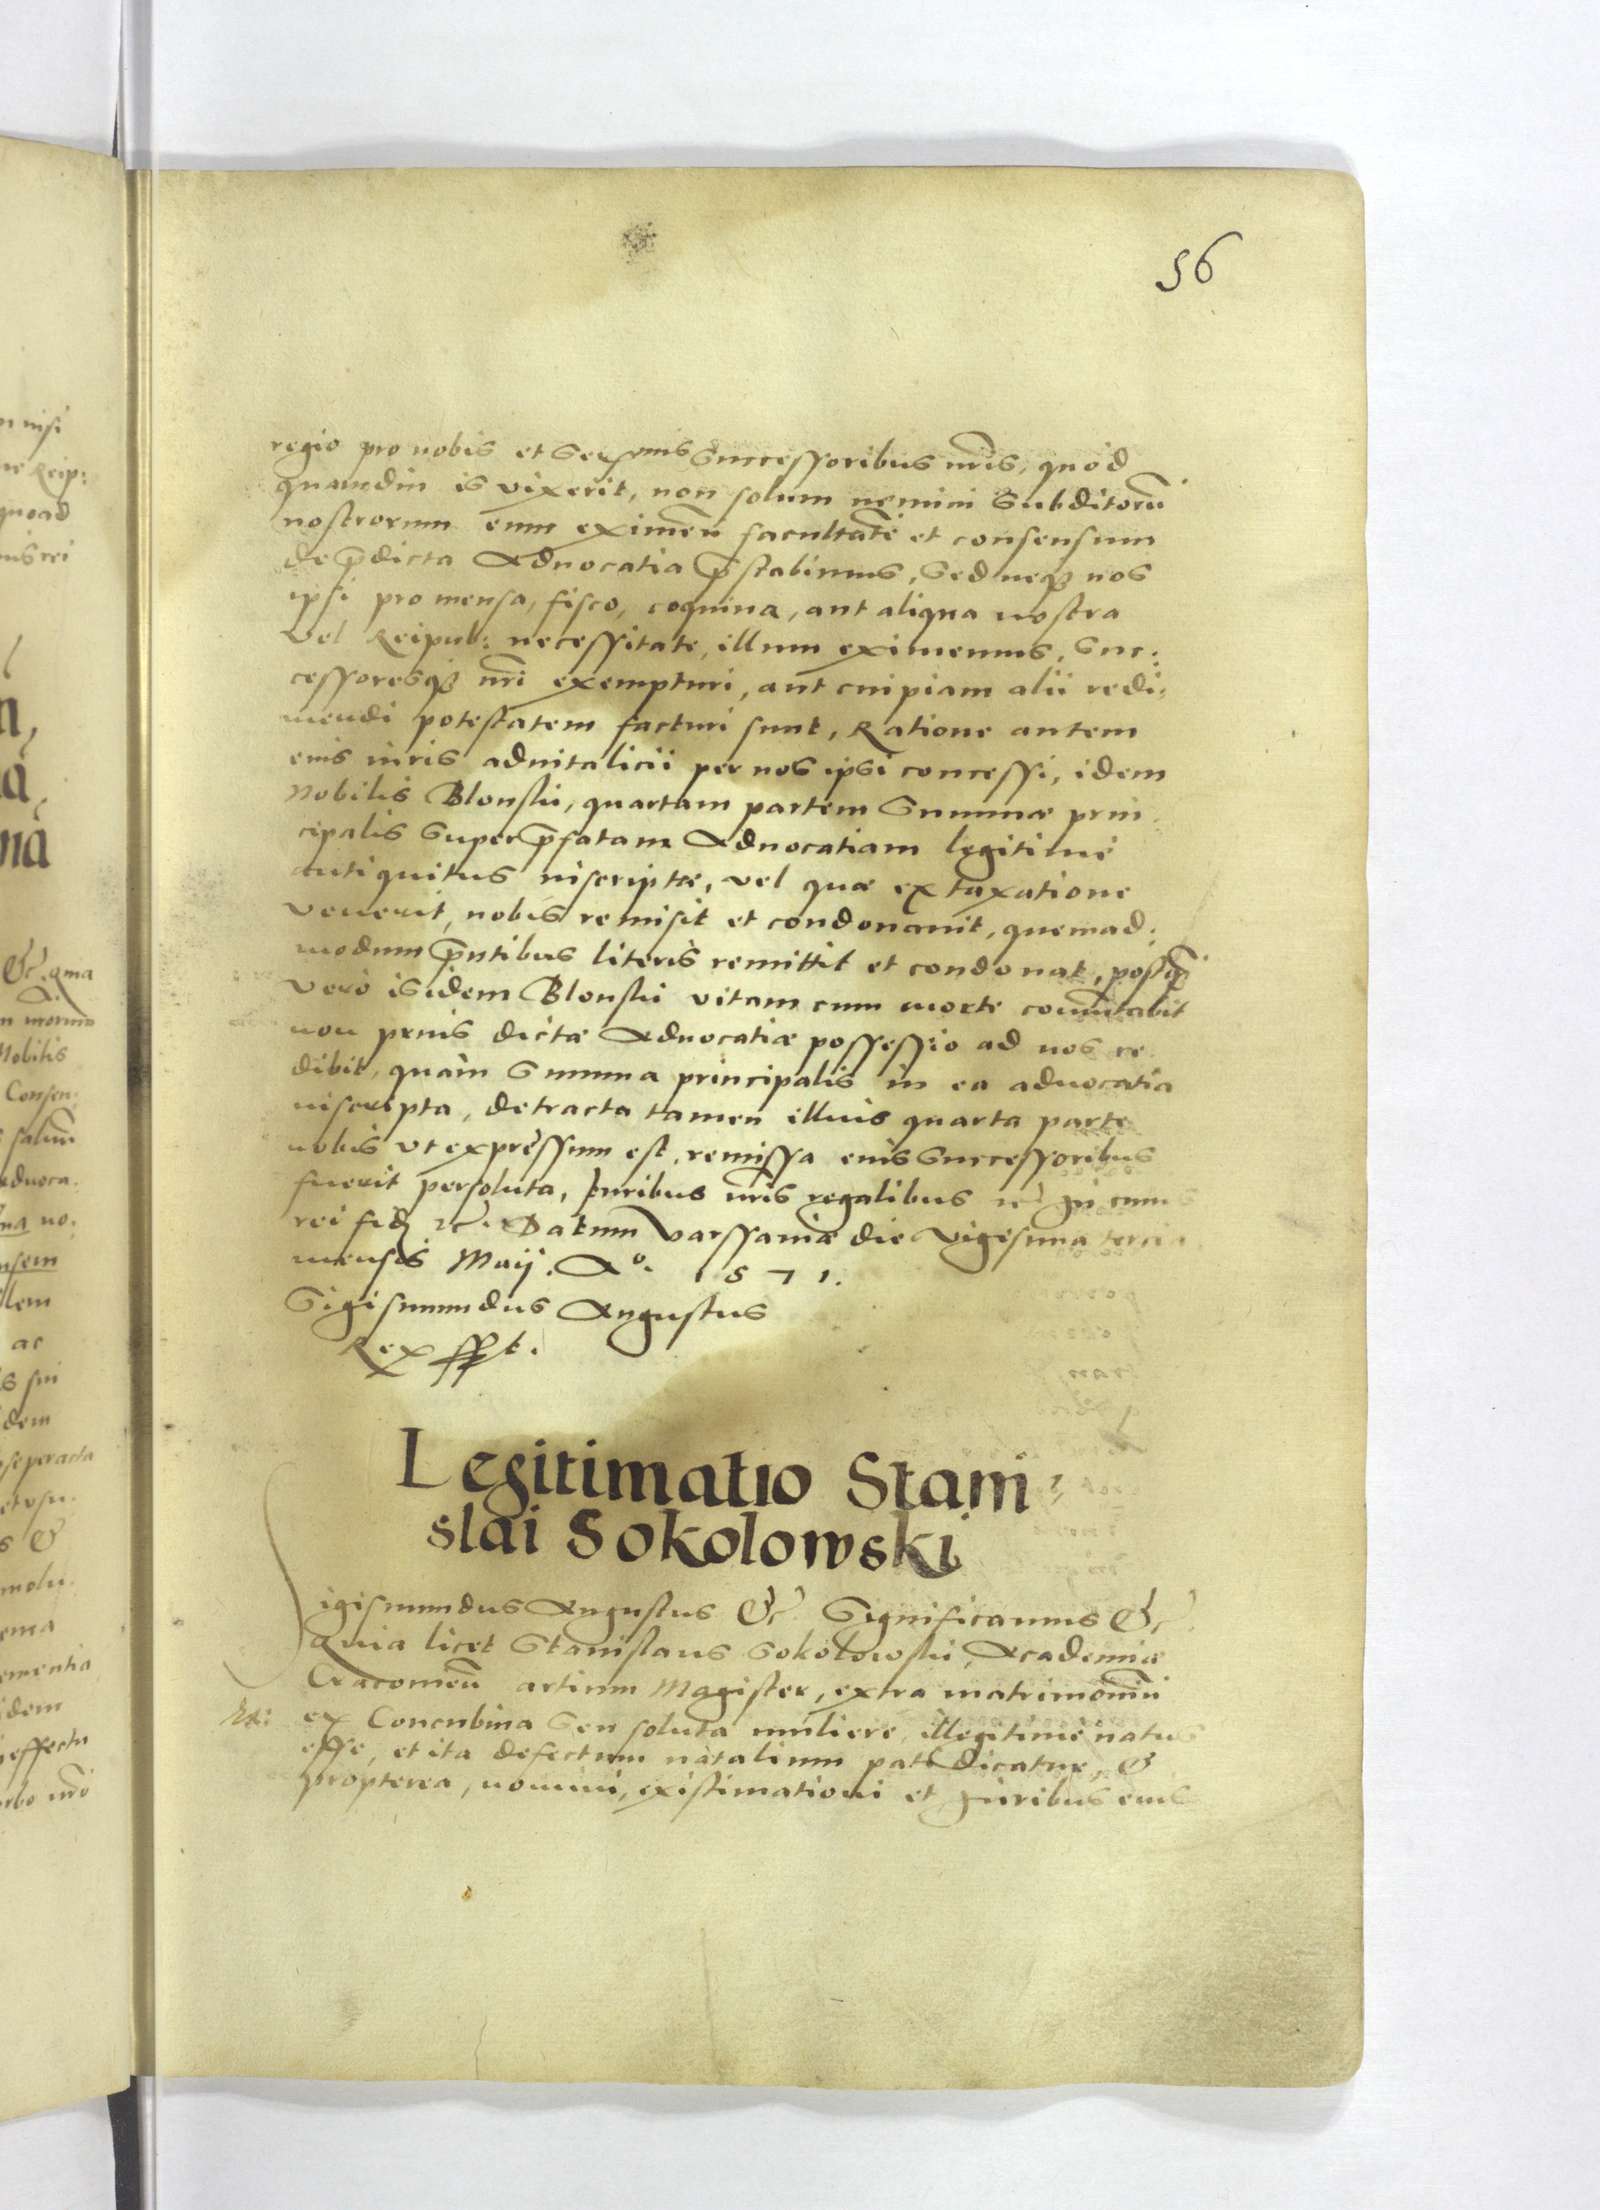 56
regio pro nobis et Ser<sup>mis</sup> Successoribus nr̃is, quod
quamdiu is vixerit, non solum nemini Subditorũ
nostrorum eum eximeñ facultatẽ et consensum
de p̃dicta Aduocatia p̃stabimus, Sed neq3 nos
ipsi pro mensa, fisco, coquina, aut aliqua nostra
vel Reipub: necessitate, illum eximemus, Suc:
cessoresq3 nr̃i exempturi, aut cuipiam alii redi:
mendi potestatem facturi sunt, Ratione autem
eius iuris aduitalicii per nos ipsi concessi, idem
Nobilis Blonski, quartam partem Summæ prin
cipalis super p̃fatam Aduocatiam legitime
antiquitus inscriptæ, vel quæ ex taxatione
venerit, nobis remisit et condonauit, quemad:
modum p̃ntibus literis remittit et condonat, postq̃
vero is idem Blonski vitam cum morte com̃utabit
non prius dictæ Aduocatiæ possessio ad nos re
dibit, quàm Summa principalis in ea aduocatia
inscripta, detracta tamen illius quarta parte
nobis vt expressum est, remissa eius Successoribus
fuerit persoluta, Iuribus nr̃is regalibus etc̃ In cuius
rei fid etc̃. Datum Varssauiæ die Vigesima tercia
mensis Maij. A°. 1571.
Sigismundus Augustus
Rex sspt.
Legitimatio Stani:
slai Sokolowski
Sigismundus Augustus &c̃ Significamus &c̃
Quia licet Stanislaus Sokolowski, Academiæ
Cracouieñ artium Magister, extra matrimoniũ
ex Concubina seu soluta muliere, illegitime natus
esse, et ita defectum natalium pati dicatur, &
propterea, nomini, existimationi et Iuribus eius